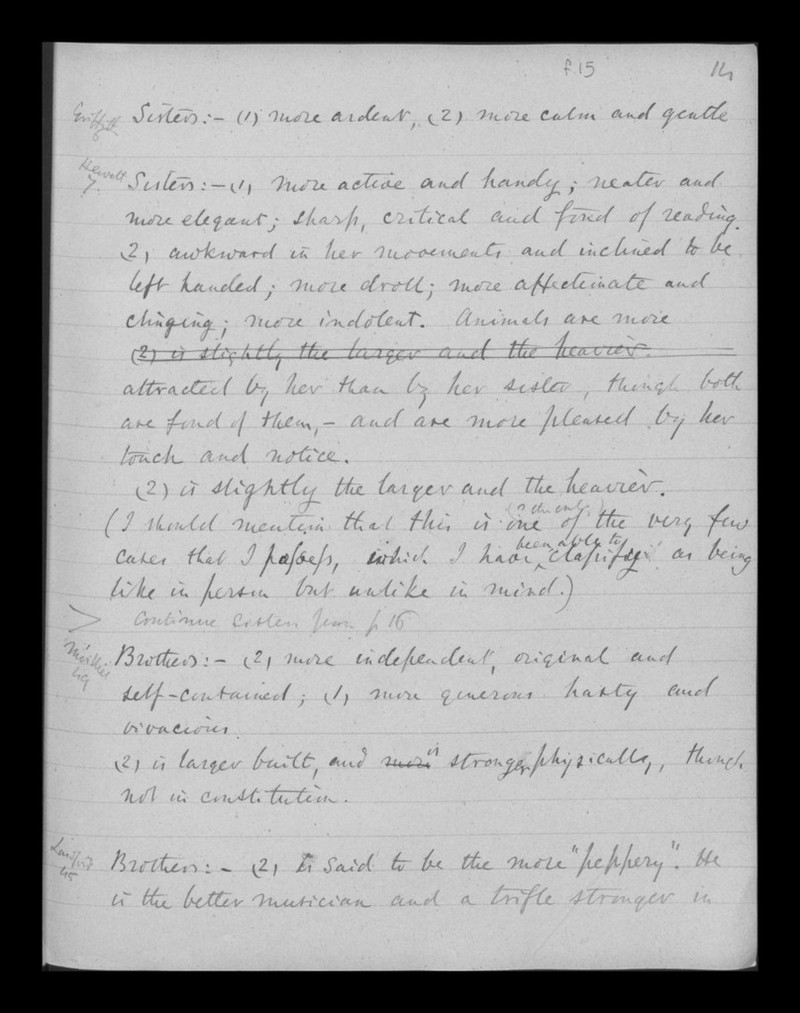 f.15 14
Griffith Sisters:- (1) more ardent, (2) more calm and gentle
Hewett 7. Sisters:- (1) more active and handy; neater and
more elegant; sharp, critical and fond of reading.
(2) awkward in her movements and inclined to be
left handed; more droll; more affectionate and
clinging; more indolent. Animals are more
(2) is slightly the larger and the heavier.
attracted by her than by her sister, though both
are fond of them,- and are more pleased by her
touch and notice.
(2) is slightly the larger and the heavier.
(I should mention that this is one of the very few
cases that I possess, which I have been able to classify as being
like in person but unlike in mind.)
> Continue Sisters from p 16
Brothers:- (2) more independent, original and
self-contained; (1) more generous hasty and
vivacious.
(2) is larger built, and more is stronger physically, though
not in constitution.
Brothers:- (2) is said to be the more "peppery". He
is the better musician and a trifle stronger in